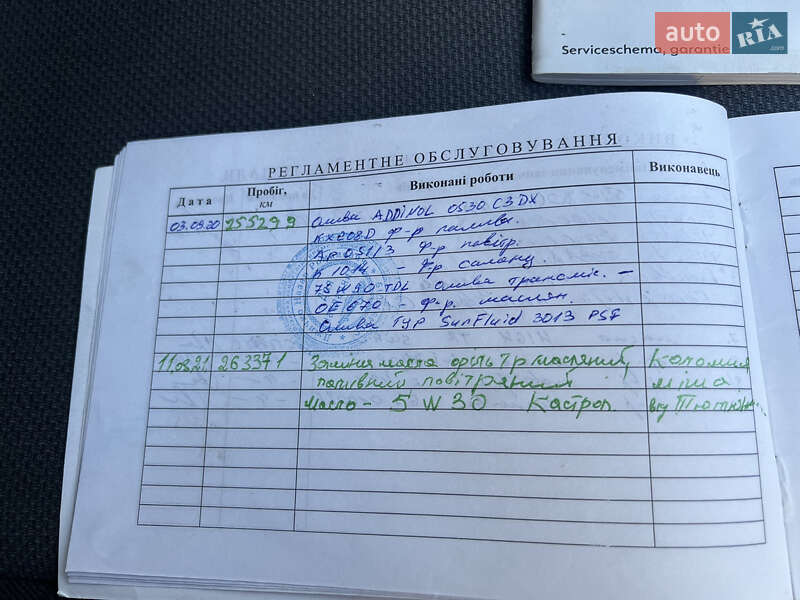 auto RIA
.com
Serviceschema, garantie
РЕГЛАМЕНТНЕ ОБСЛУГОВУВАННЯ
Дата Пробіг, км Виконані роботи Виконавець
03.09.20 255299 Олива ADDINOL 0530 C3 DX
KX208D ф-р палива.
AP 051/3 ф-р повітр.
K 1014 - ф-р салону.
75W90 TDL Олива трансміс. -
OE 670 - ф-р. маслян.
Олива Typ SunFluid 3013 PSF
11.08.21 263371 Заміна масла фільтр масляний, Коломия
паливний повітряний міша
Масло - 5W30 Кастрол вгу